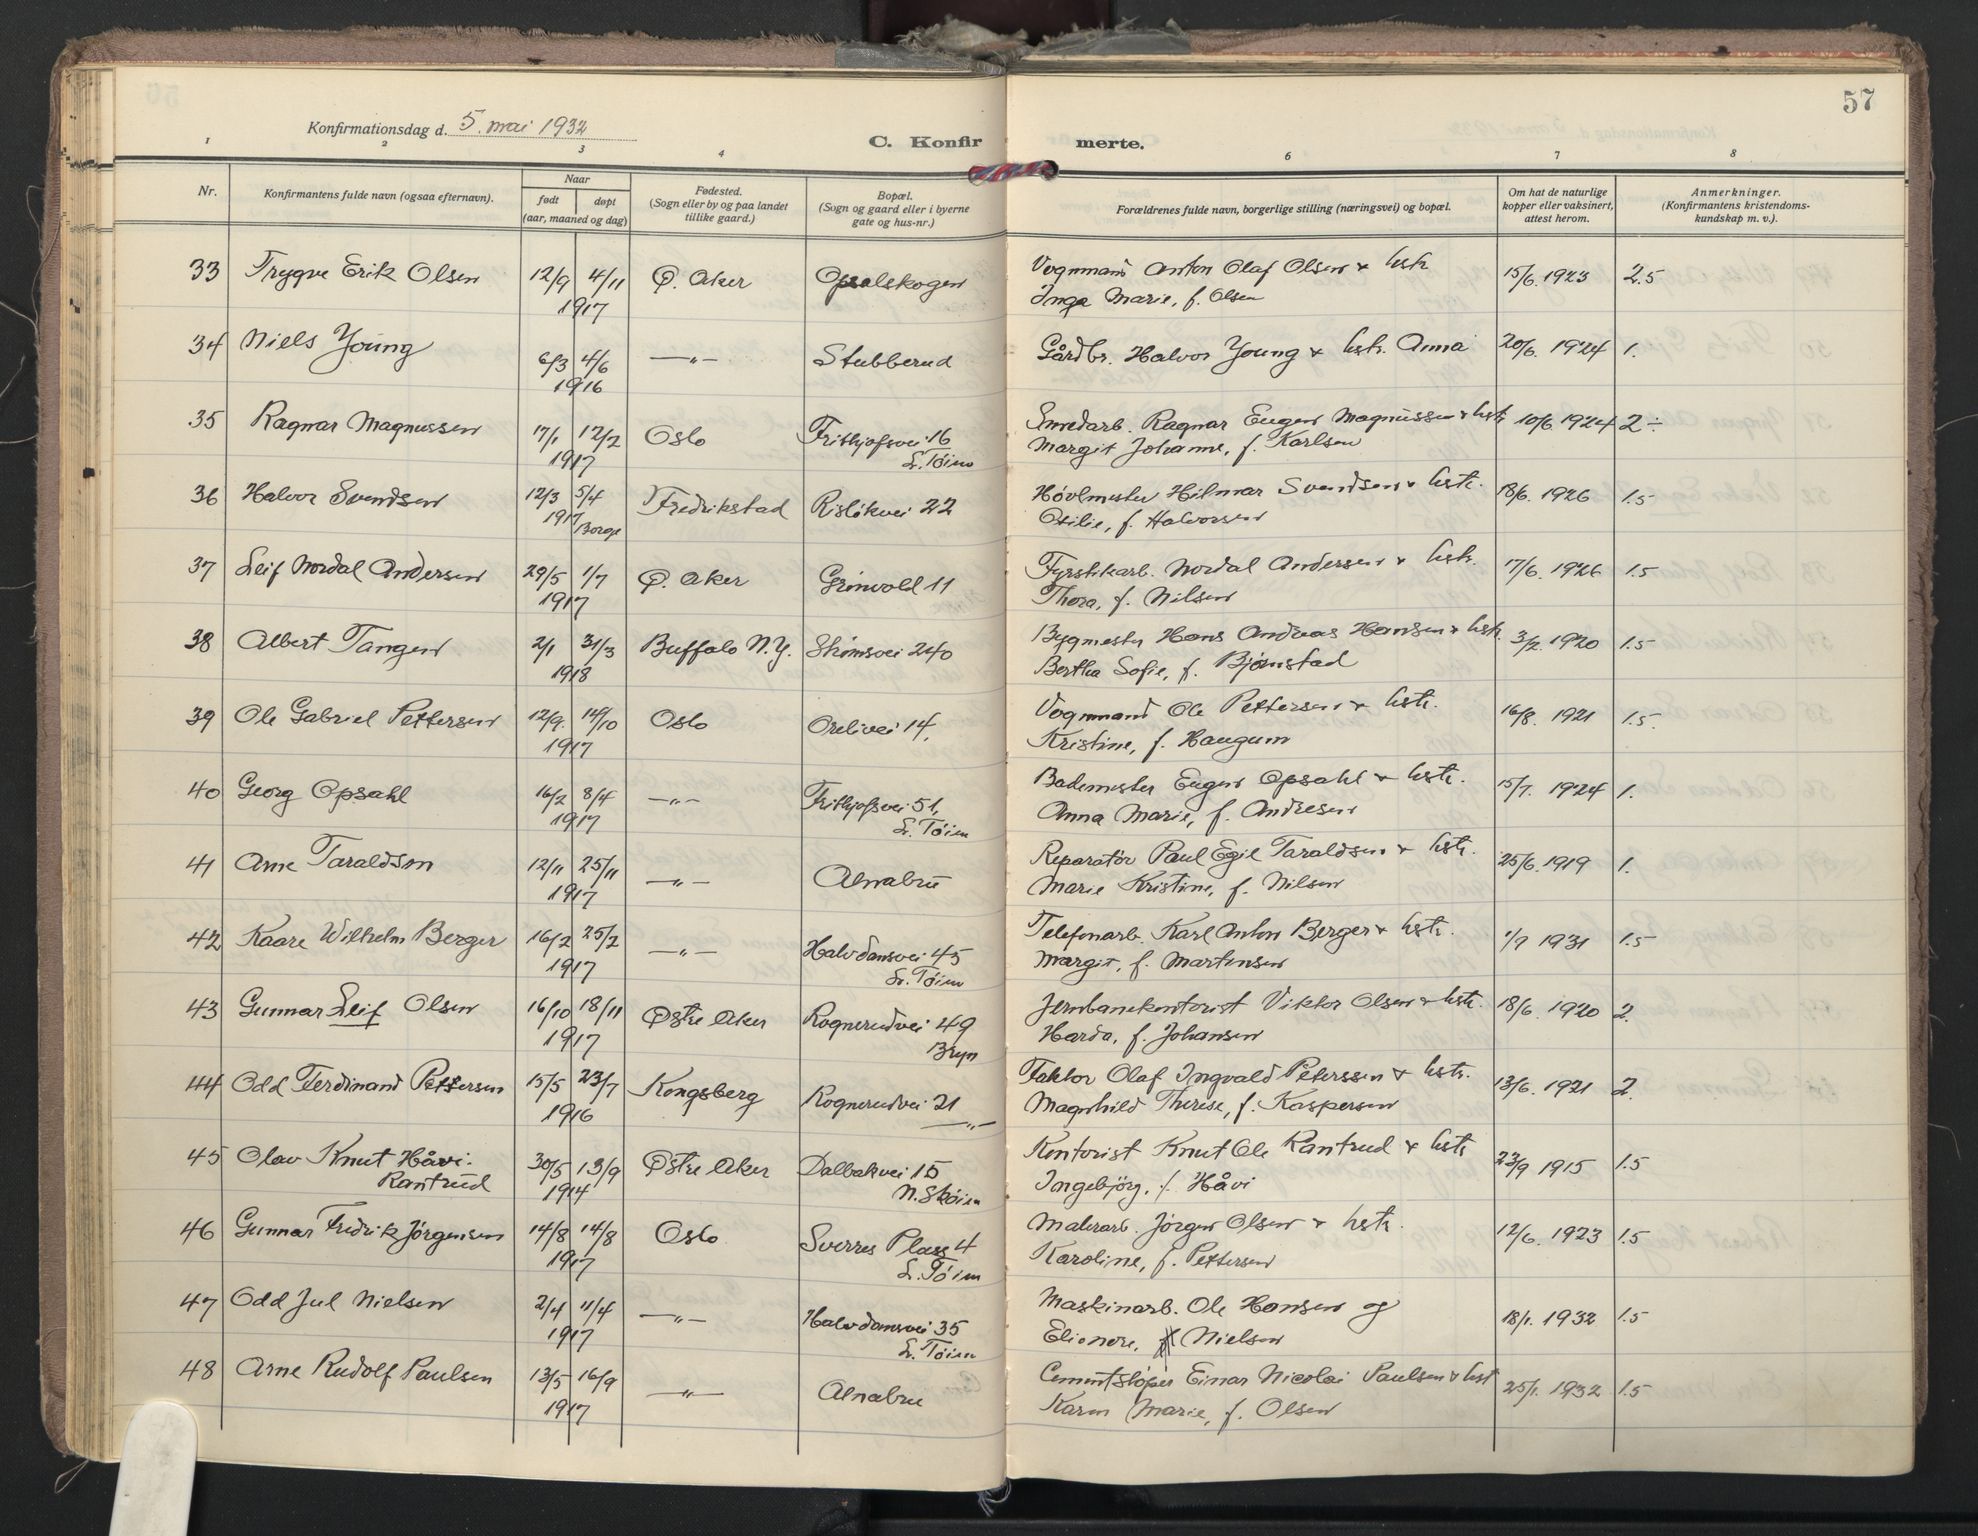 57
Konfirmationsdag d. 5. mai 1932
C. Konfir merte.
1 2 3 4 6 7 8
Nr.
Konfirmantens fulde navn (ogsaa efternavn).
Naar
født døpt
(aar, maaned og dag)
Fødested.
(Sogn eller by og paa landet
tillike gaard.)
Bopæl.
(Sogn og gaard eller i byerne
gate og hus-nr.)
Forældrenes fulde navn, borgerlige stilling (næringsvei) og bopæl.
Om hat de naturlige
kopper eller vaksinert,
attest herom.
Anmerkninger.
(Konfirmantens kristendoms-
kundskap m. v.).
33 Trygve Erik Olsen 12/9 4/11 Ø. Aker Opsalskogen Vognmand Anton Olaf Olsen & hstr. 15/6. 1923 2.5
1917 Inga Marie, f. Olsen
34 Niels Young 6/3 4/6 —"— Stubberud Gårdbr. Halvor Young & hstr. Anna 20/6. 1924 1.
1916
35 Ragnar Magnussen 17/1 12/2 Oslo Frithjofsvei 16 Smedarb. Ragnar Eugen Magnussen & hstr. 10/6 1924 2 ÷
1917 L. Tøien Margit Johanne, f. Karlsen
36 Halvor Svendsen 12/3 5/4 Fredrikstad Risløkvei 22 Høvlmester Hilmar Svendsen & hstr. 18/6. 1926 1.5
1917 Borge Otilie, f. Halvorsen
37 Leif Nordal Andersen 29/5 1/7 Ø. Aker Grønvold 11 Fyrstikarb. Nordal Andersen & hstr. 17/6. 1926 1.5
1917 Thora, f. Nilsen
38 Albert Tangen 2/1 31/3 Buffalo N.Y. Strømsvei 240 Bygmester Hans Andreas Hansen & hstr. 3/2. 1920 1.5
1918 Bertha Sofie, f. Bjørnstad
39 Ole Gabriel Pettersen 12/9. 14/10 Oslo Orelivei 14. Vognmand Ole Pettersen & hstr. 16/8. 1921 1.5.
1917 Kristine, f. Haugum
40 Georg Opsahl 16/2 8/4 —"— Frithjofsvei 51, Bademester Eugen Opsahl & hstr. 15/7. 1924 1.
1917 L. Tøien Anna Marie, f. Andresen
41 Arne Taraldsen 12/11 25/11 —"— Alnabru Reparatør Paul Egil Taraldsen & hstr. 25/6. 1919 1.
1917 Marie Kristine, f. Nilsen
42 Kaare Wilhelm Berger 16/2 25/2 —"— Halvdansvei 45 Telefonarb. Karl Anton Berger & hstr. 1/9 1931 1.5
1917 L. Tøien Margit, f. Martinsen
43 Gunnar Leif Olsen 16/10 18/11 Østre Aker Rognerudvei 49 Jernbanekontorist Viktor Olsen & hstr. 18/6. 1920 2.
1917 Bryn Harda, f. Johansen
44 Odd Ferdinand Pettersen 15/5 23/7 Kongsberg Rognerudvei 21 Faktor Olaf Ingvald Peterssen & hstr. 13/6. 1921 2.
1916 —"— Magnhild Therese, f. Kaspersen
45 Olav Knut Håvi- 30/5 13/9 Østre Aker Dalbakvei 15 Kontorist Knut Ole Rantrud & hstr 23/9 1915 1.5
Rantrud 1914 N. Skøien Ingebjørg, f. Håvi
46 Gunnar Fredrik Jørgensen 14/8 14/8 Oslo Sverres Plass 4 Malerarb. Jörgen Olsen & hstr. 12/6. 1923 1.5
1917 L. Tøien Karoline, f. Pettersen
47 Odd Jul Nielsen 2/4 11/4 —"— Halvdansvei 35 Maskinarb. Ole Hansen og 18/1. 1932 1.5
1917 L. Tøien Elionore, Nielsen
48 Arne Rudolf Paulsen 13/5 16/9 —"— Alnabru Cementstøper Einar Nicolai Paulsen & hst 25/1. 1932 1.5
1917 Karen Marie, f. Olsen